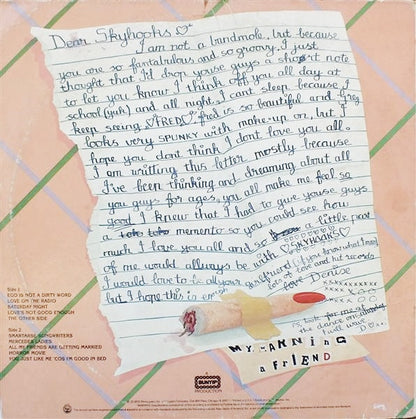 Dear Skyhooks
I am not a bandmole, but because
you are so fantabulous and so groovy. I just
thought that I'd drop youse guys a short note
to let you know I think off you all day at
school (yuk) and all night. I cant sleep because I
keep seeing FRED. fred is so beautiful and Greg
looks very SPUNKY with make-up on, but I
hope you dont think I dont love you all.
I am writting this letter mostly because
I've been thinking and dreaming about all
you guys for ages, you all make me feel so
good I knew that I had to give youse guys
a momento so you could see how
much I love you all and so a little peice
of me would allways be with SKYHOOKS
I would love to be all your girlfriend (if you know what I mean)
but I hope this is
lots of love and hit records
love Denise
XXXXXXXXXX
look for me at
the dance on
I will wear
MY MANNING
a FRIEND
Side 1
EGO IS NOT A DIRTY WORD
LOVE ON THE RADIO
SATURDAY NIGHT
LOVE'S NOT GOOD ENOUGH
THE OTHER SIDE
Side 2
SMARTARSE SONGWRITERS
MERCEDES LADIES
ALL MY FRIENDS ARE GETTING MARRIED
HORROR MOVIE
YOU JUST LIKE ME 'COS I'M GOOD IN BED
BUNYIP
PRODUCTION